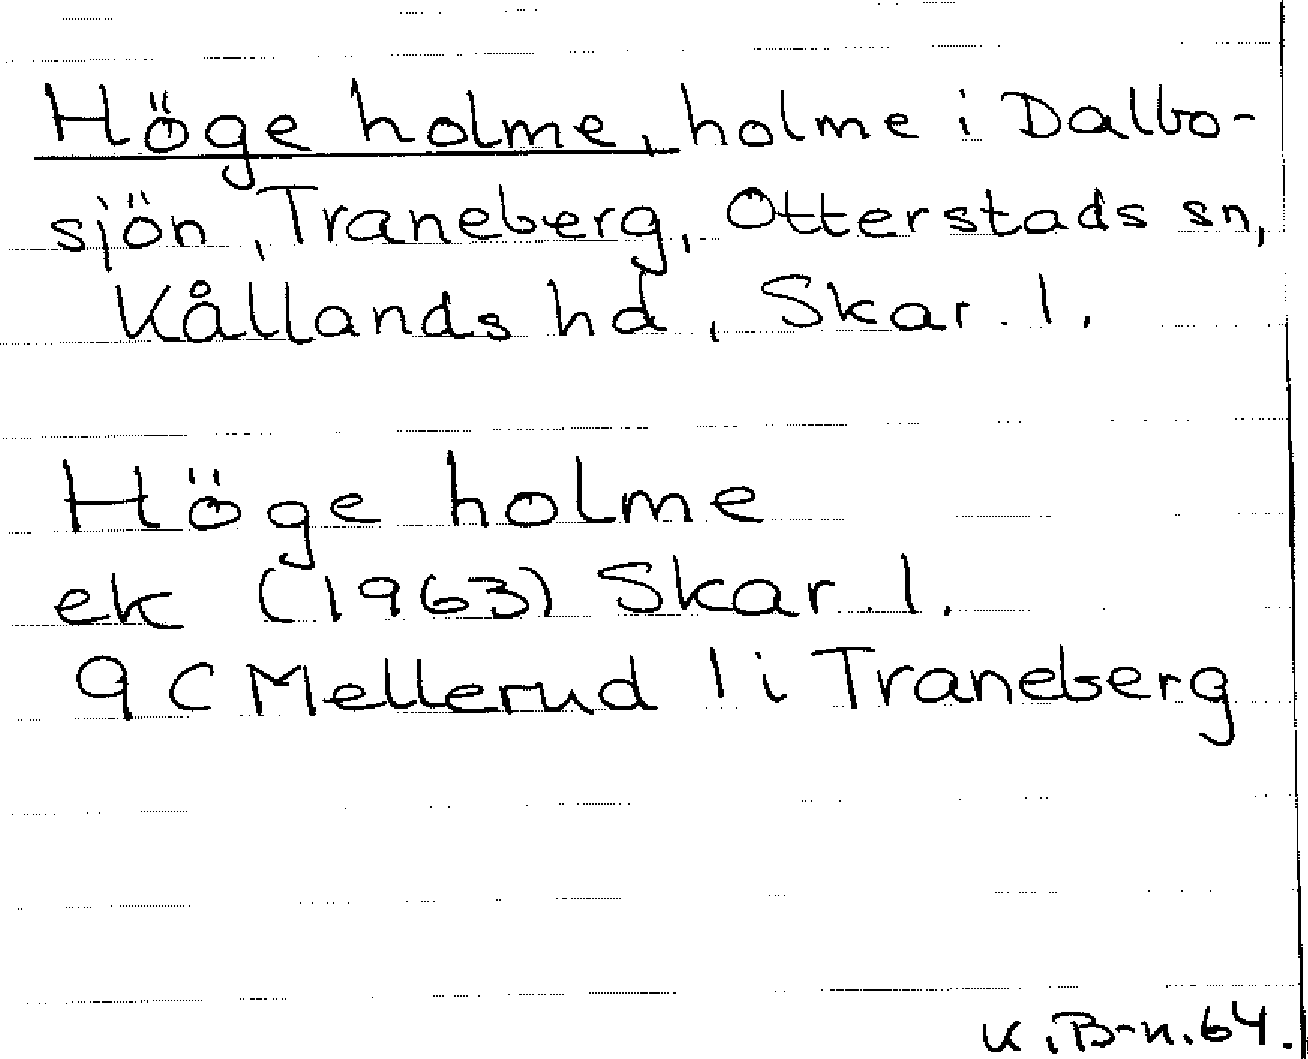 Höge holme, holme i Dalbo-
sjön, Traneberg, Otterstads sn,
Kållands hd, Skar. l.
Höge holme
ek (1963) Skar. l.
9 C Mellerud l i Traneberg
K. B-n. 64.